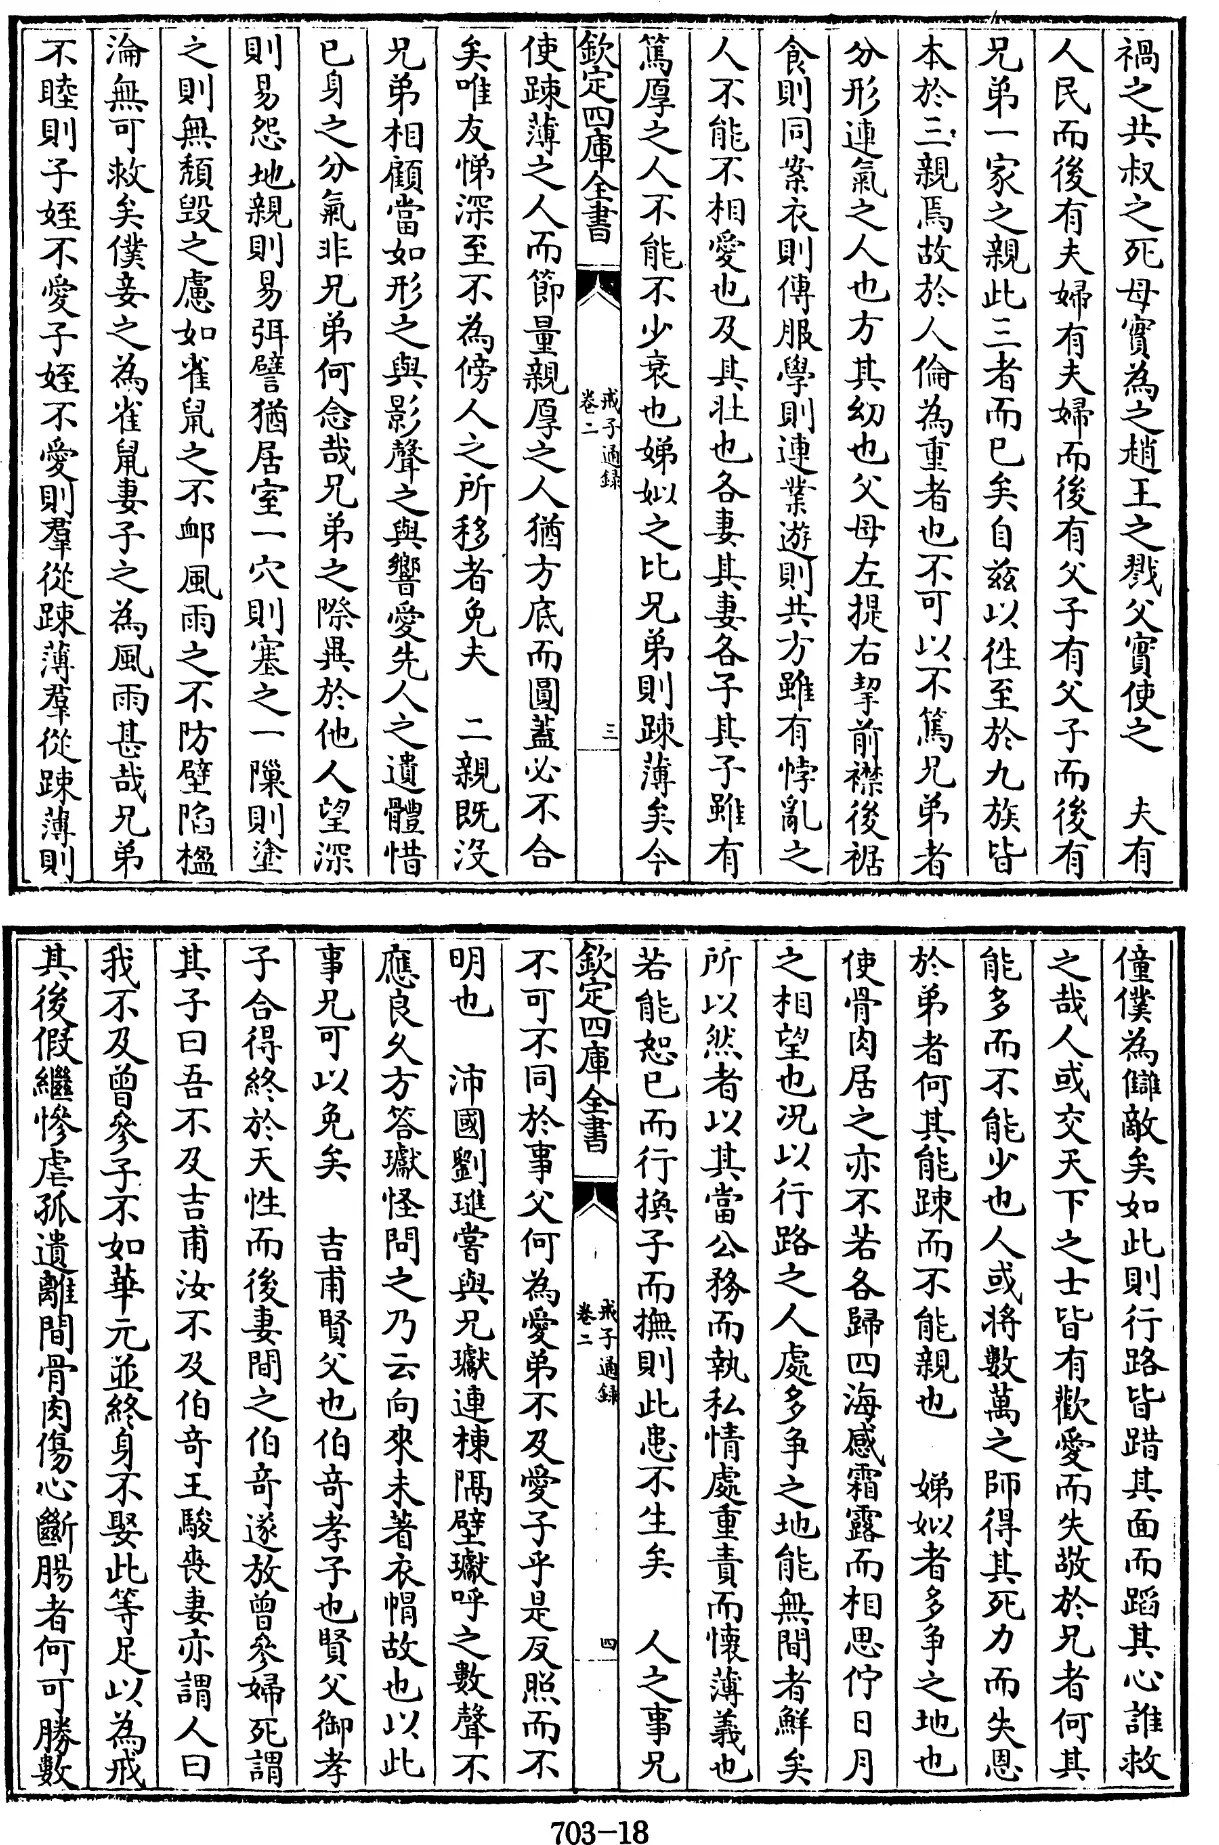 禍之共叔之死母實為之趙王之戮父實使之　夫有
人民而後有夫婦有夫婦而後有父子有父子而後有
兄弟一家之親此三者而已矣自兹以徃至於九族皆
本於三親焉故於人倫為重者也不可以不篤兄弟者
分形連氣之人也方其幼也父母左提右挈前襟後裾
食則同案衣則傳服學則連業遊則共方雖有悖亂之
人不能不相愛也及其壯也各妻其妻各子其子雖有
篤厚之人不能不少衰也娣姒之比兄弟則踈薄矣今
欽定四庫全書　戒子通録卷二　三
使踈薄之人而節量親厚之人猶方底而圓蓋必不合
矣唯友悌深至不為傍人之所移者免夫　二親既没
兄弟相顧當如形之與影聲之與響愛先人之遺體惜
已身之分氣非兄弟何念哉兄弟之際異於他人望深
則易怨地親則易弭譬猶居室一穴則塞之一隟則塗
之則無頽毀之慮如雀鼠之不䘏風雨之不防壁陷楹
淪無可救矣僕妾之為雀鼠妻子之為風雨甚哉兄弟
不睦則子姪不愛子姪不愛則羣從踈薄羣從踈薄則
僮僕為讎敵矣如此則行路皆踖其面而蹈其心誰救
之哉人或交天下之士皆有歡愛而失敬於兄者何其
能多而不能少也人或將數萬之師得其死力而失恩
於弟者何其能踈而不能親也　娣姒者多争之地也
使骨肉居之亦不若各歸四海感霜露而相思佇日月
之相望也况以行路之人處多争之地能無間者鮮矣
所以然者以其當公務而執私情處重責而懷薄義也
若能恕已而行換子而撫則此患不生矣　人之事兄
欽定四庫全書　戒子通録卷二　四
不可不同於事父何為愛弟不及愛子乎是反照而不
明也　沛國劉璡嘗與兄瓛連棟隔壁瓛呼之數聲不
應良久方答瓛怪問之乃云向來未著衣帽故也以此
事兄可以免矣　吉甫賢父也伯奇孝子也賢父御孝
子合得終於天性而後妻間之伯奇遂放曾參婦死謂
其子曰吾不及吉甫汝不及伯奇王駿喪妻亦謂人曰
我不及曾參子不如華元並終身不娶此等足以為戒
其後假繼慘虐孤遺離間骨肉傷心斷腸者何可勝數
703-18